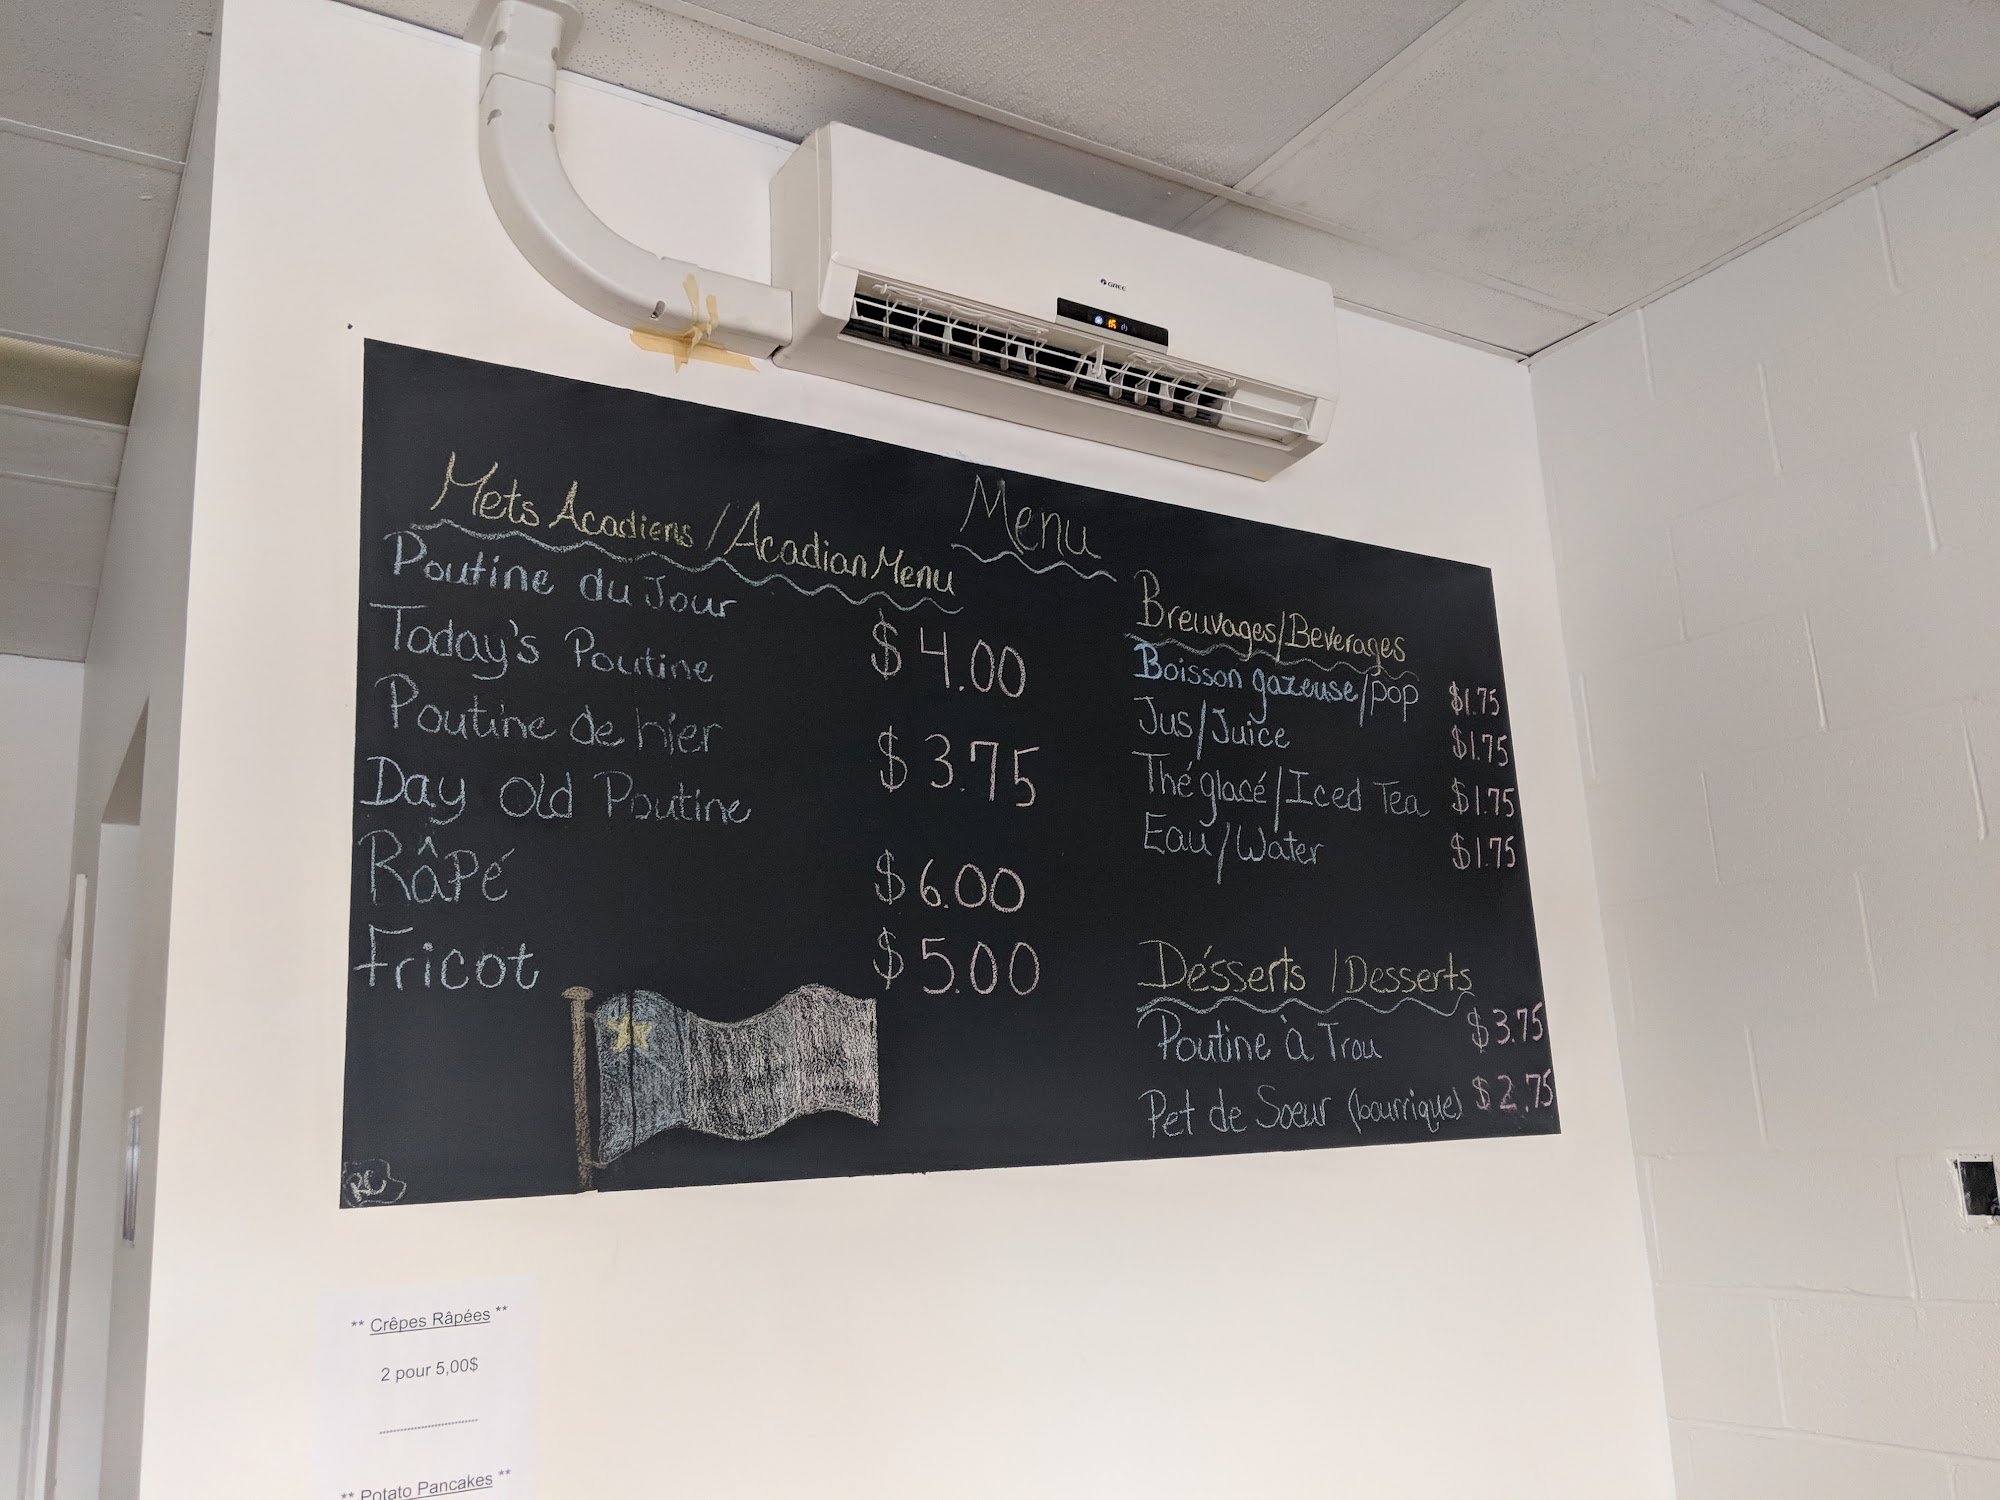 GREE
Menu
Mets Acadiens / Acadian Menu
Poutine du Jour
Today's Poutine $4.00
Poutine de hier
Day Old Poutine $3.75
Râpé $6.00
Fricot $5.00
RC
Breuvages/Beverages
Boisson gazeuse/pop $1.75
Jus/Juice $1.75
Thé glacé/Iced Tea $1.75
Eau/Water $1.75
Désserts / Desserts
Poutine à Trou $3.75
Pet de Soeur (bourrique) $2.75
** Crêpes Râpées **
2 pour 5,00$
** Potato Pancakes **